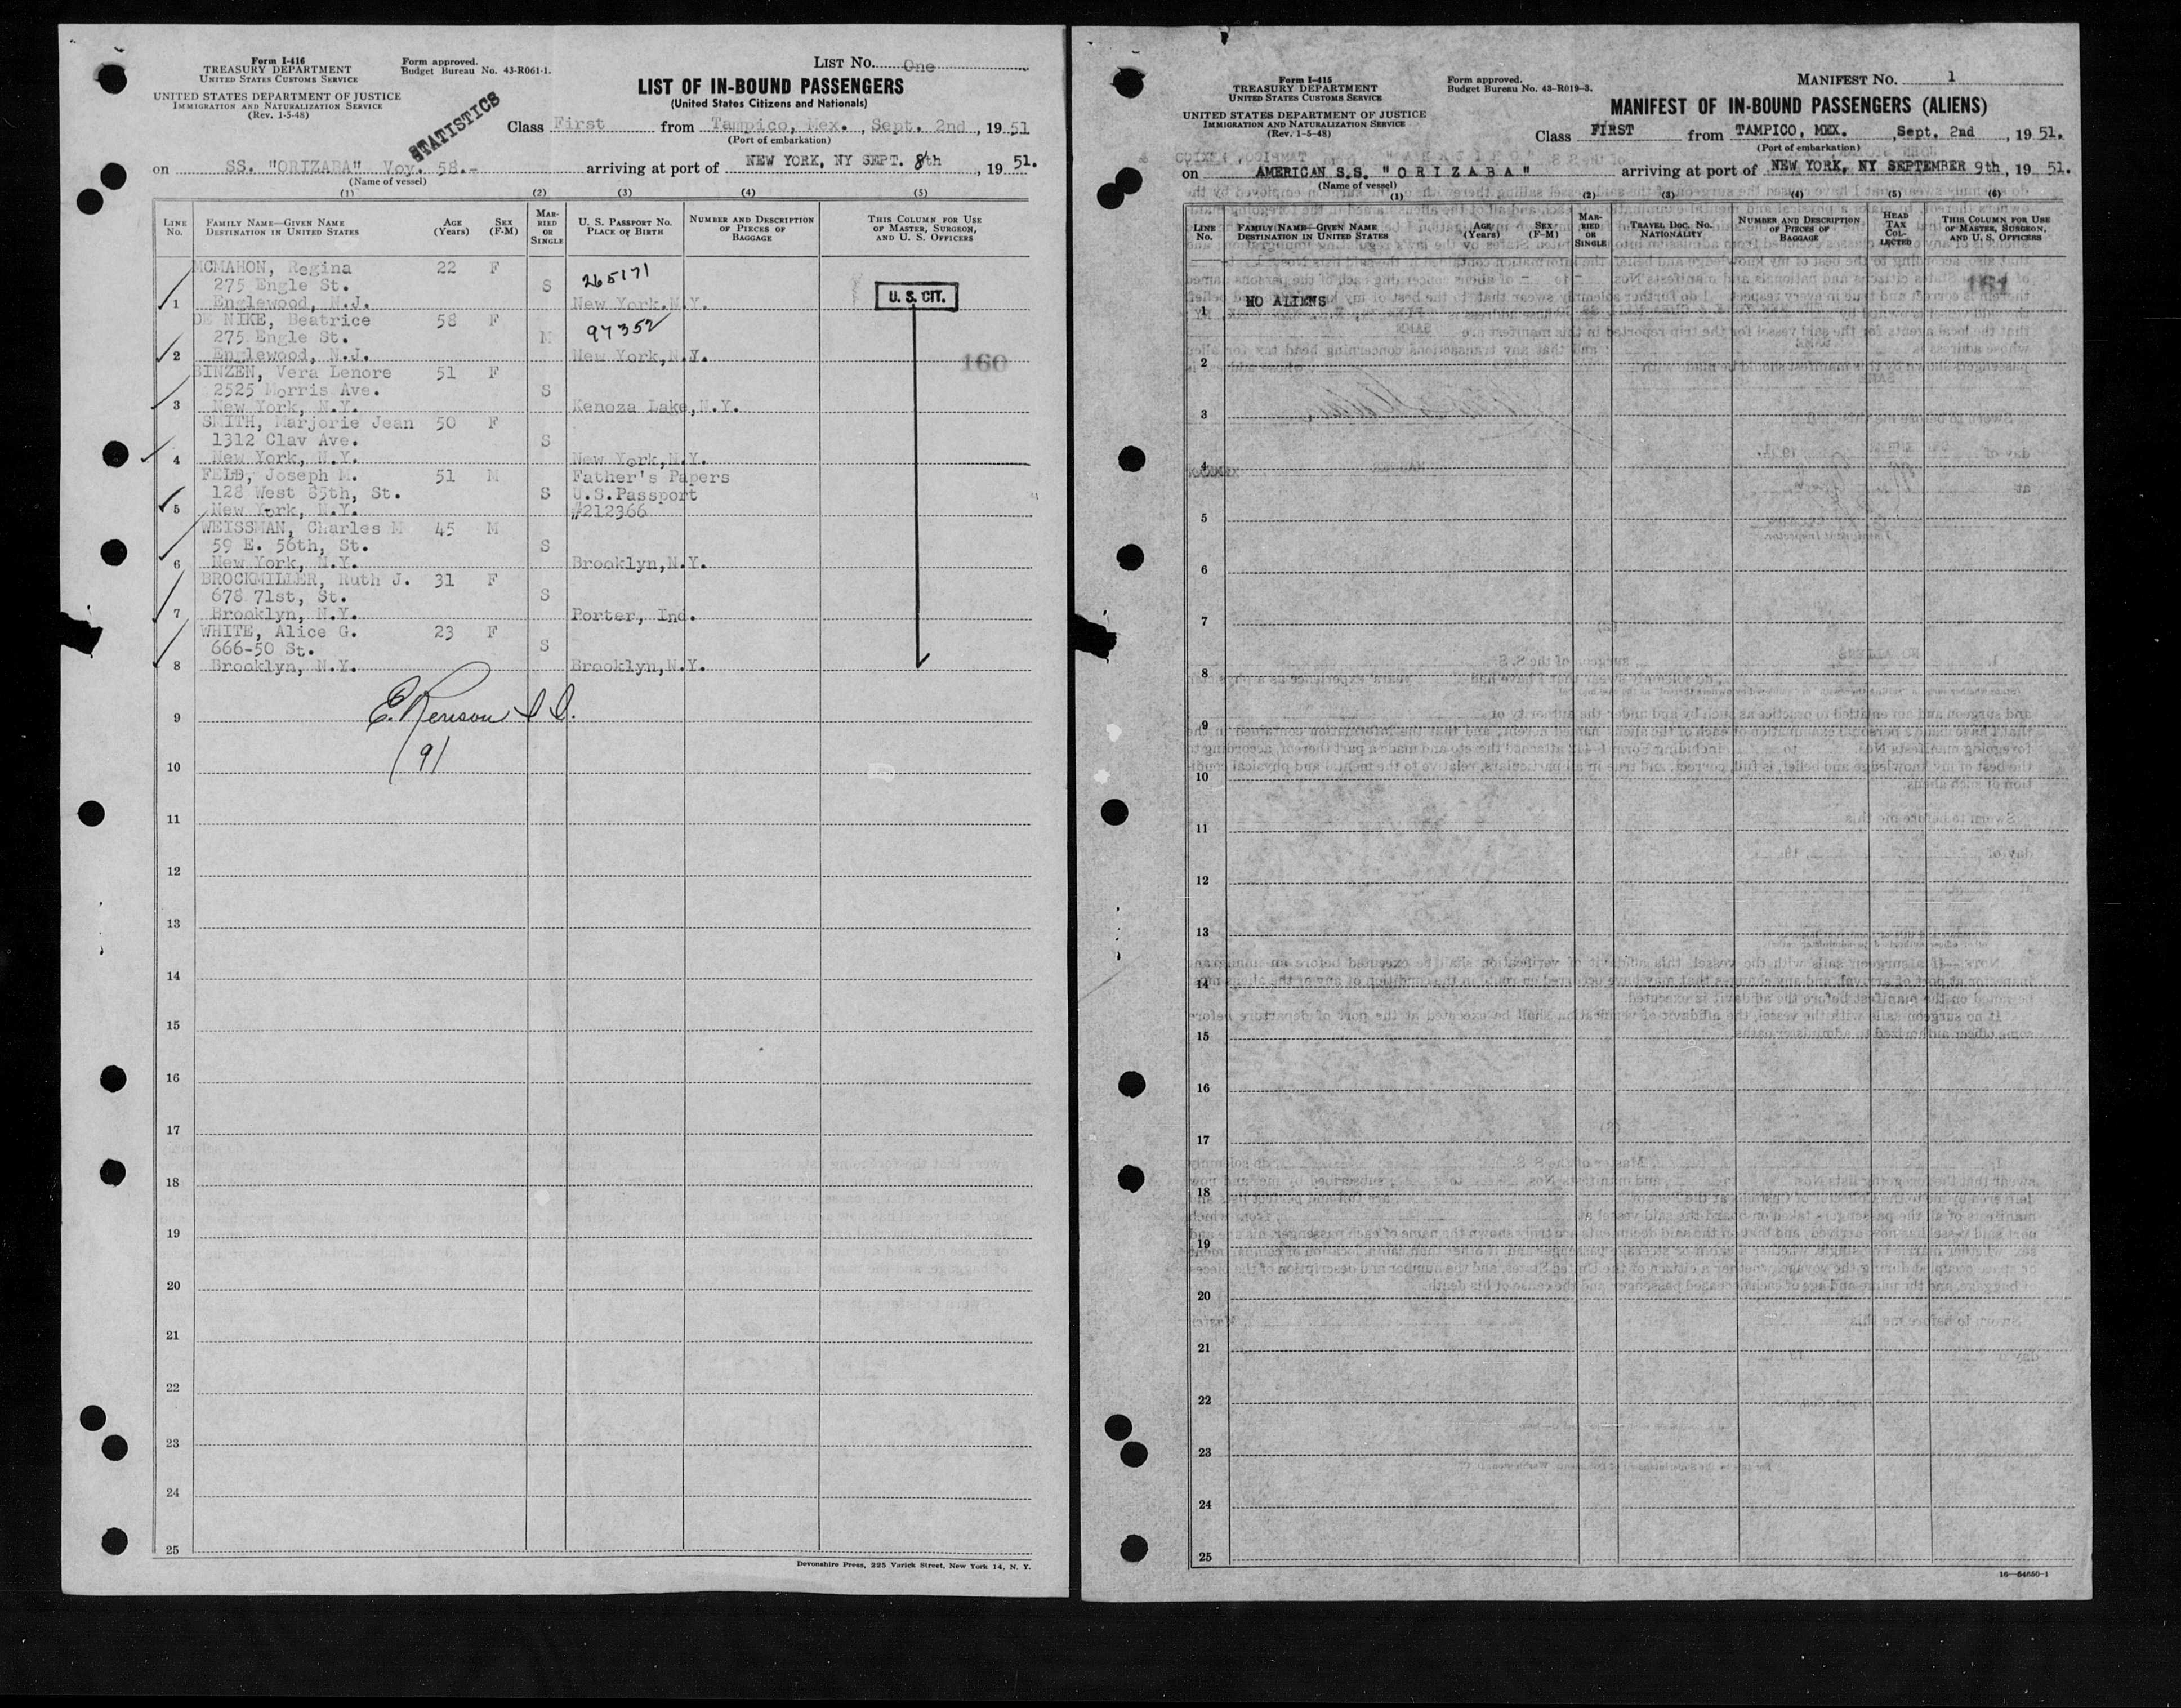 Form I-416
TREASURY DEPARTMENT
UNITED STATES CUSTOMS SERVICE
UNITED STATES DEPARTMENT OF JUSTICE
IMMIGRATION AND NATURALIZATION SERVICE
(Rev. 1-5-48)
Form approved.
Budget Bureau No. 43-R061-1.
STATISTICS
LIST NO. One
LIST OF IN-BOUND PASSENGERS
(United States Citizens and Nationals)
Class First from Tampico, Mex., Sept. 2nd, 1951
(Port of embarkation)
on SS. "ORIZABA" Voy. 58.- arriving at port of NEW YORK, NY SEPT. 8th, 1951.
(Name of vessel)
(1) (2) (3) (4) (5)
LINE No. FAMILY NAME—GIVEN NAME DESTINATION IN UNITED STATES AGE (Years) SEX (F-M) MARRIED OR SINGLE U. S. PASSPORT NO. PLACE OF BIRTH NUMBER AND DESCRIPTION OF PIECES OF BAGGAGE THIS COLUMN FOR USE OF MASTER, SURGEON, AND U. S. OFFICERS
MCMAHON, Regina 22 F
275 Engle St. S 265171
1 Englewood, N.J. New York.N.Y. U. S. CIT.
DE NIKE, Beatrice 58 F
275 Engle St. M 97352
2 Englewood, N.J. New York,N.Y. 160
BINZEN, Vera Lenore 51 F
2525 Morris Ave. S
3 New York, N.Y. Kenoza Lake,N.Y.
SMITH, Marjorie Jean 50 F
1312 Clav Ave. S
4 New York, N.Y. New York,N.Y.
FELD, Joseph M. 51 M Father's Papers
128 West 85th, St. S U.S.Passport
5 New York, N.Y. #212366
WEISSMAN, Charles M 45 M
59 E. 56th, St. S
6 New York, N.Y. Brooklyn,N.Y.
BROCKMILLER, Ruth J. 31 F
678 71st, St. S
7 Brooklyn, N.Y. Porter, Ind.
WHITE, Alice G. 23 F
666-50 St. S
8 Brooklyn, N.Y. Brooklyn,N.Y.
9
10
11
12
13
14
15
16
17
18
19
20
21
22
23
24
25
Devonshire Press, 225 Varick Street, New York 14, N. Y.
Form I-415
TREASURY DEPARTMENT
UNITED STATES CUSTOMS SERVICE
UNITED STATES DEPARTMENT OF JUSTICE
IMMIGRATION AND NATURALIZATION SERVICE
(Rev. 1-5-48)
Form approved.
Budget Bureau No. 43-R019-3.
MANIFEST NO. 1
MANIFEST OF IN-BOUND PASSENGERS (ALIENS)
Class FIRST from TAMPICO, MEX., Sept. 2nd, 1951.
(Port of embarkation)
on AMERICAN S.S. "O R I Z A B A" arriving at port of NEW YORK, NY SEPTEMBER 9th, 1951.
(Name of vessel)
(1) (2) (3) (4) (5) (6)
LINE No. FAMILY NAME—GIVEN NAME DESTINATION IN UNITED STATES AGE (Years) SEX (F-M) MARRIED OR SINGLE TRAVEL DOC. NO. NATIONALITY NUMBER AND DESCRIPTION OF PIECES OF BAGGAGE HEAD TAX COLLECTED THIS COLUMN FOR USE OF MASTER, SURGEON, AND U. S. OFFICERS
161
1 NO ALIENS
2
3
4
5
6
7
8
9
10
11
12
13
14
15
16
17
18
19
20
21
22
23
24
25
16—54650-1